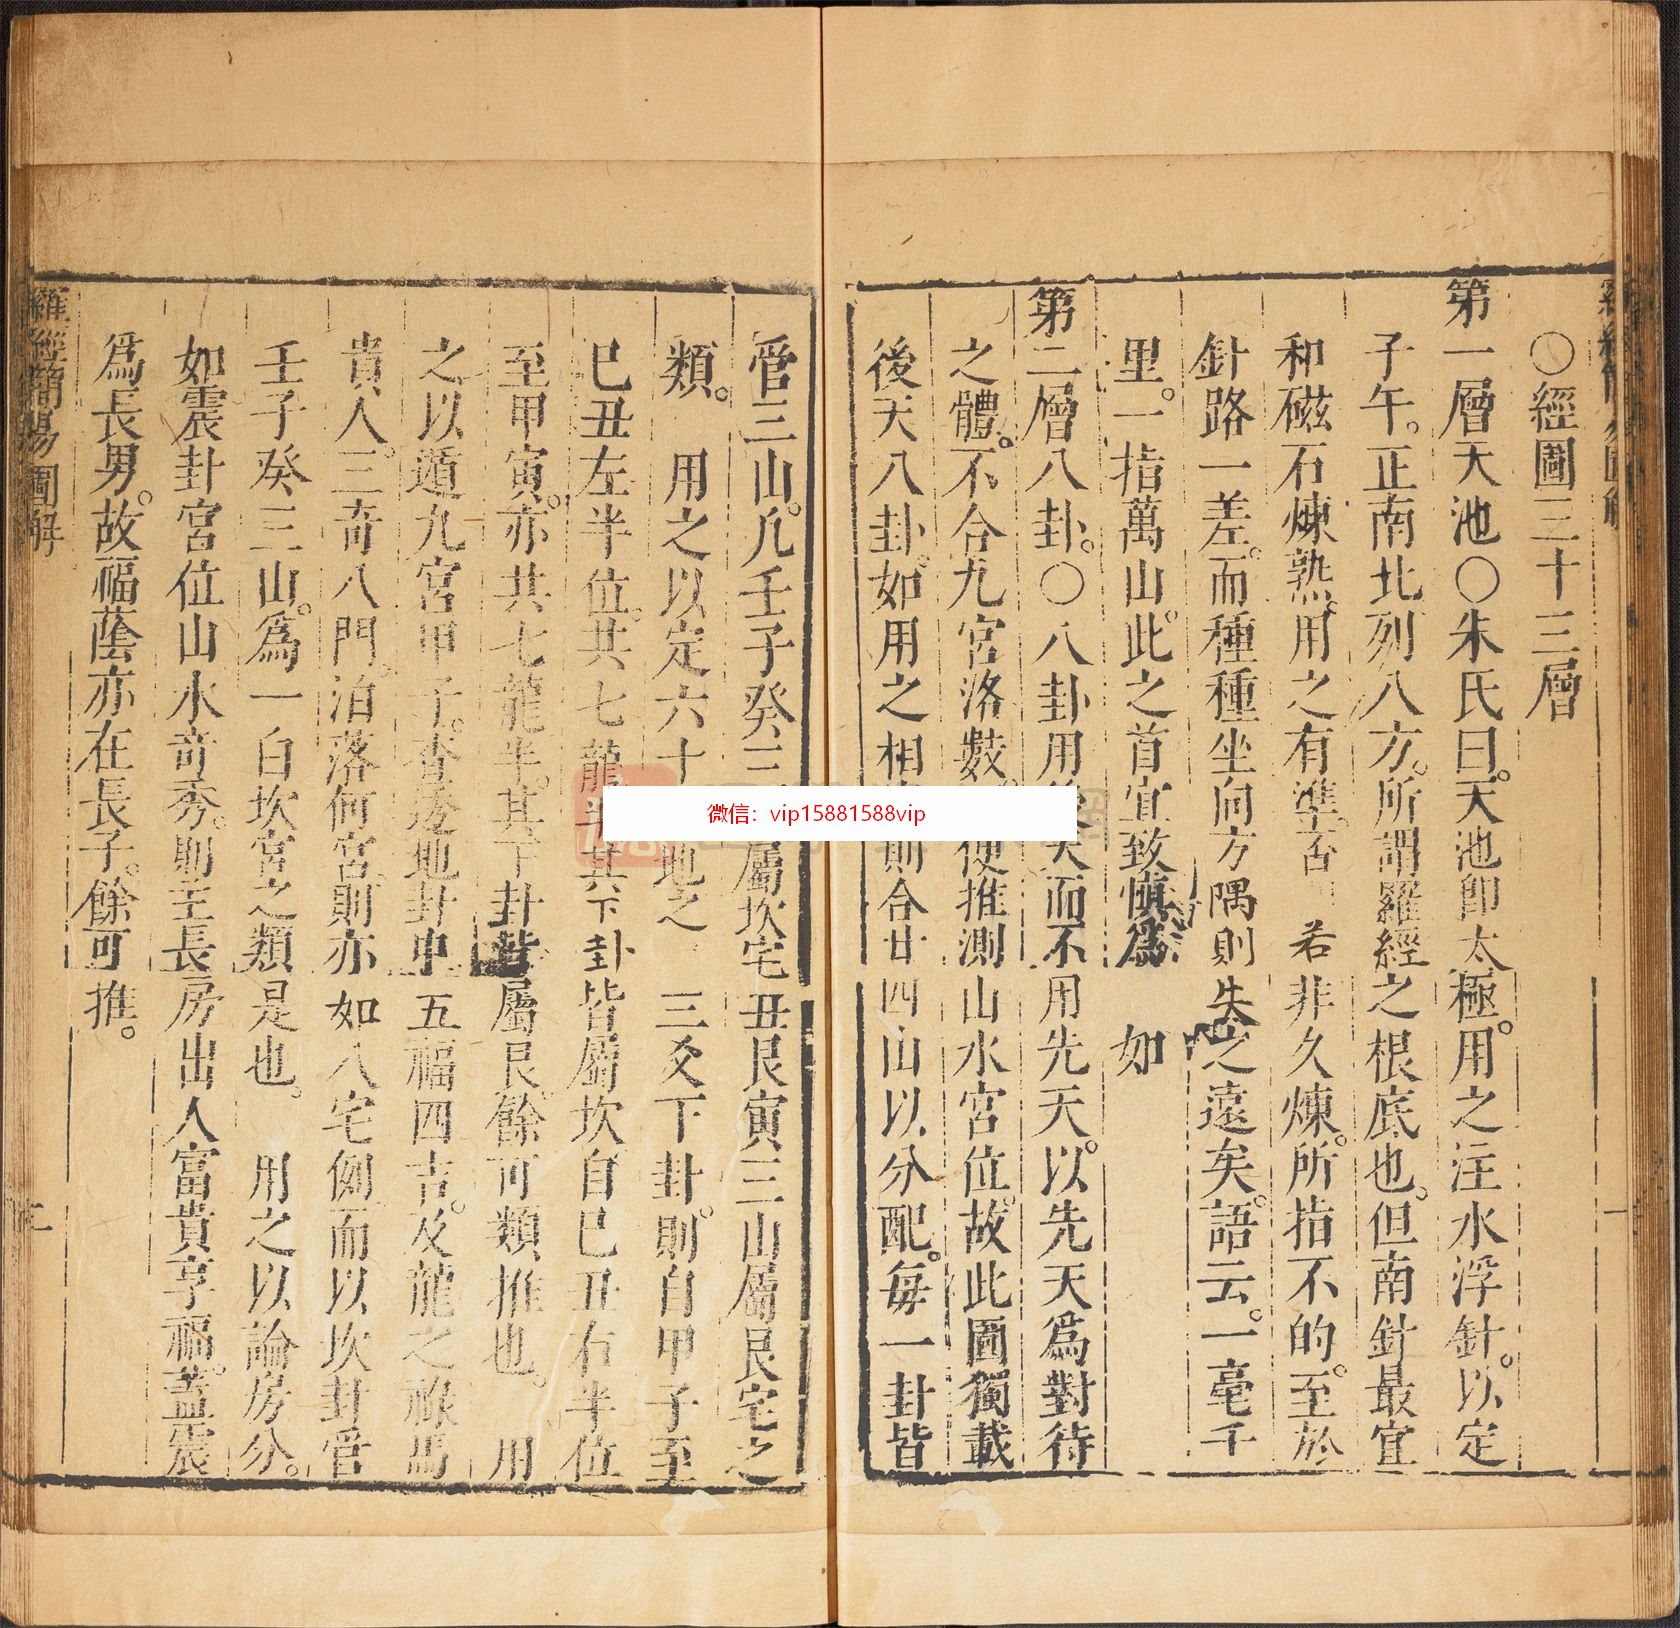 ○經圖三十三層
第一層天池○朱氏曰天池卽太極用之注水浮針以定
子午正南北列八方所謂羅經之根底也但南針最宜
和磁石煉熟用之有準否若非久煉所指不的至於
針路一差而種種坐向方隅則失之遠矣語云一毫千
里一指萬山此之首宜致愼爲如
第二層八卦○八卦用後天而不用先天以先天爲對待
之體不合九宮洛數便推測山水宮位故此圖獨載
後天八卦如用之相則合廿四山以分配每一卦皆
管三山凡壬子癸三屬坎宅丑艮寅三山屬艮宅之
類用之以定六十地之三爻下卦則自甲子至
巳丑左半位共七龍半其下卦皆屬坎自巳丑右半位
至甲寅亦共七龍半其下卦皆屬艮餘可類推也用
之以遁九宮甲子查透地卦中五福四吉及龍之祿馬
貴人三奇八門泊落何宮則亦如八宅例而以坎卦管
壬子癸三山爲一白坎宮之類是也用之以論房分
如震卦宮位山水奇秀則主長房出人富貴享福蓋震
爲長男故福蔭亦在長子餘可推
羅經簡易圖解
二
微信：vip15881588vip